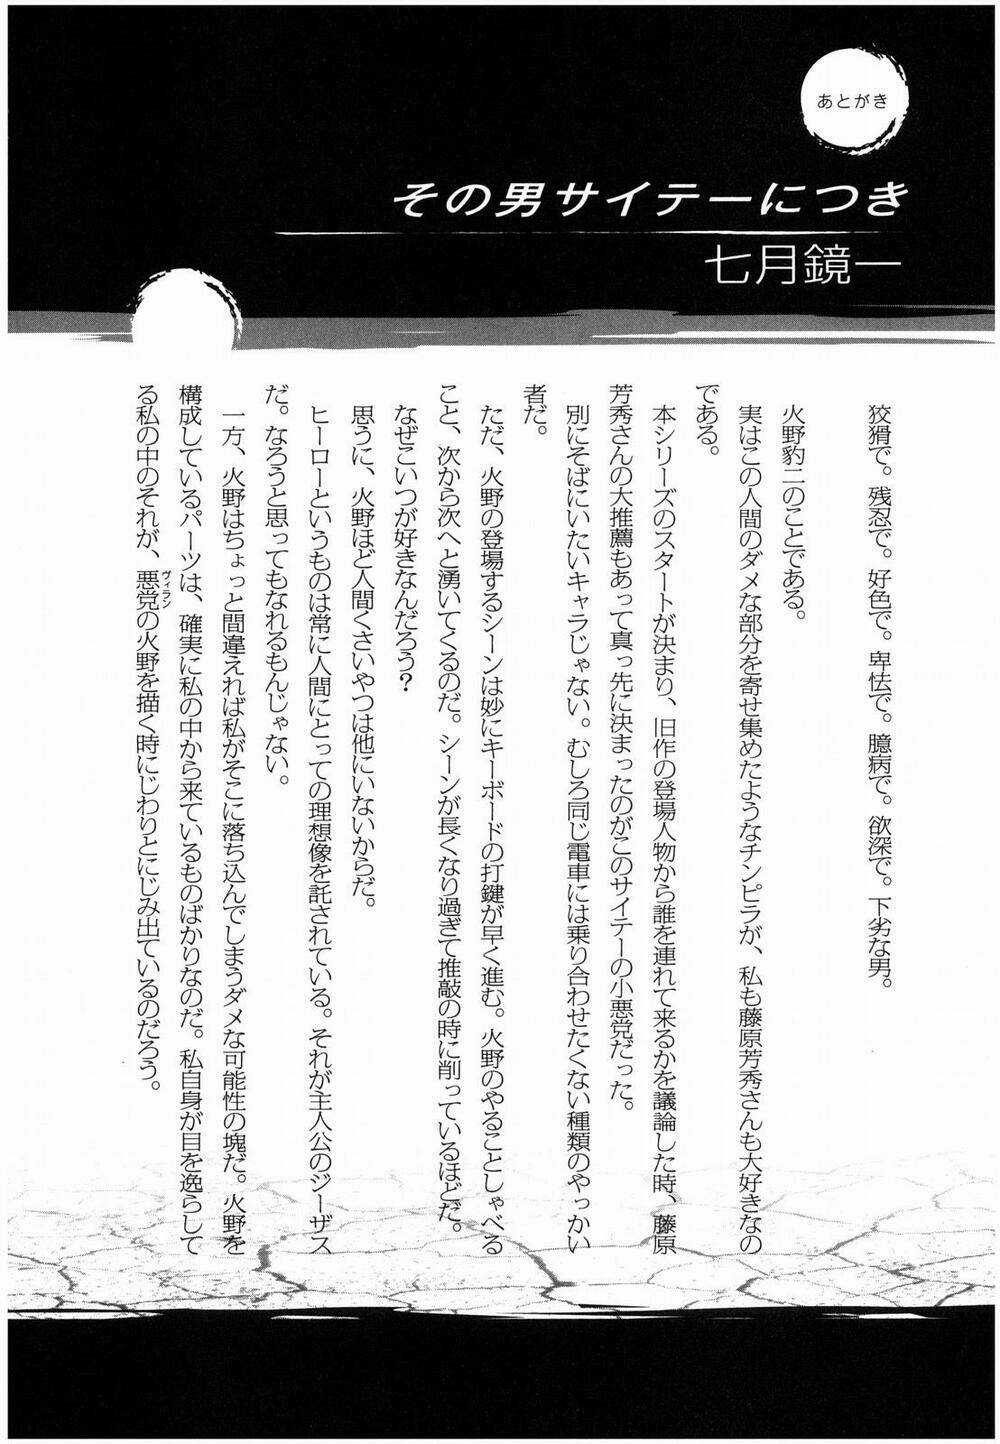 あとがき
その男サイテーにつき
七月鏡一
狡猾で。残忍で。好色で。卑怯で。臆病で。欲深で。下劣な男。
火野豹二のことである。
実はこの人間のダメな部分を寄せ集めたようなチンピラが、私も藤原芳秀さんも大好きなの
である。
本シリーズのスタートが決まり、旧作の登場人物から誰を連れて来るかを議論した時、藤原
芳秀さんの大推薦もあって真っ先に決まったのがこのサイテーの小悪党だった。
別にそばにいたいキャラじゃない。むしろ同じ電車には乗り合わせたくない種類のやっかい
者だ。
ただ、火野の登場するシーンは妙にキーボードの打鍵が早く進む。火野のやることしゃべる
こと、次から次へと湧いてくるのだ。シーンが長くなり過ぎて推敲の時に削っているほどだ。
なぜこいつが好きなんだろう?
思うに、火野ほど人間くさいやつは他にいないからだ。
ヒーローというものは常に人間にとっての理想像を託されている。それが主人公のジーザス
だ。なろうと思ってもなれるもんじゃない。
一方、火野はちょっと間違えれば私がそこに落ち込んでしまうダメな可能性の塊だ。火野を
構成しているパーツは、確実に私の中から来ているものばかりなのだ。私自身が目を逸らして
る私の中のそれが、悪党の火野を描く時にじわりとにじみ出ているのだろう。
ヴィラン